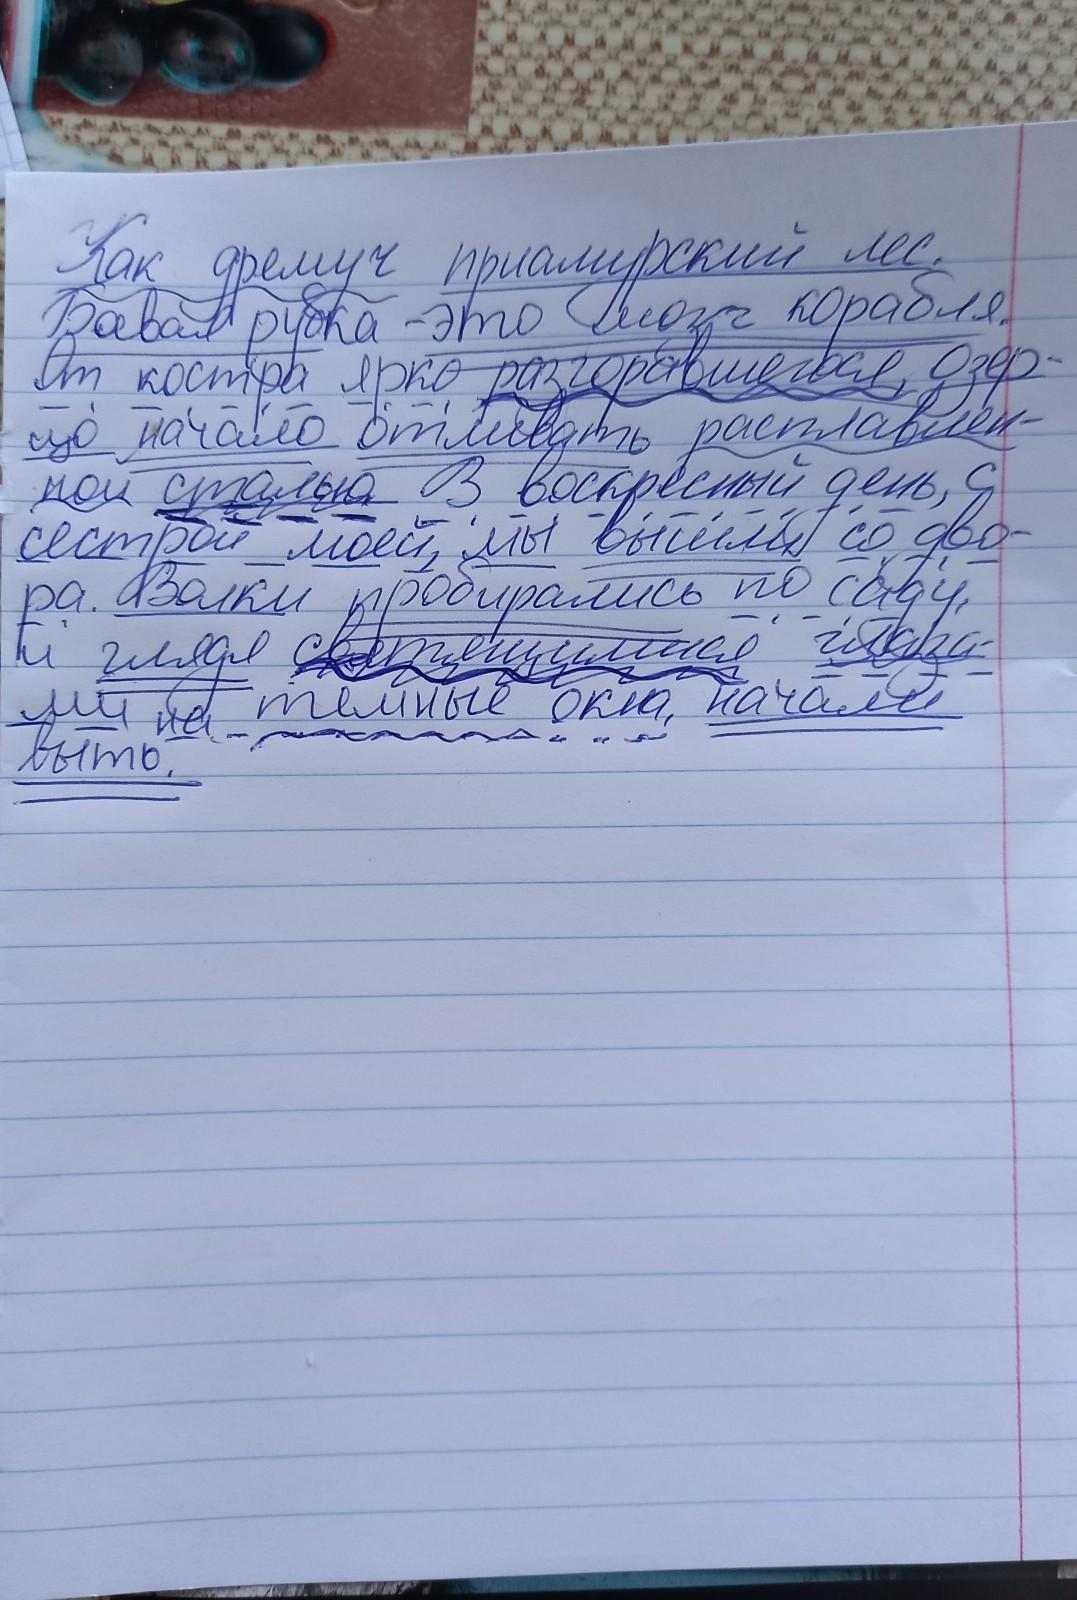 Как дремуч приамурский лес.
Боевая рубка - это мозг корабля.
От костра ярко разгоравшегося, озер-
цо начало отливать расплавлен-
ной сталью В воскресный день, с
сестрой моей, мы вышли со дво-
ра. Волки пробирались по саду,
и глядя светящимися глаза-
ми на темные окна, начали
выть.